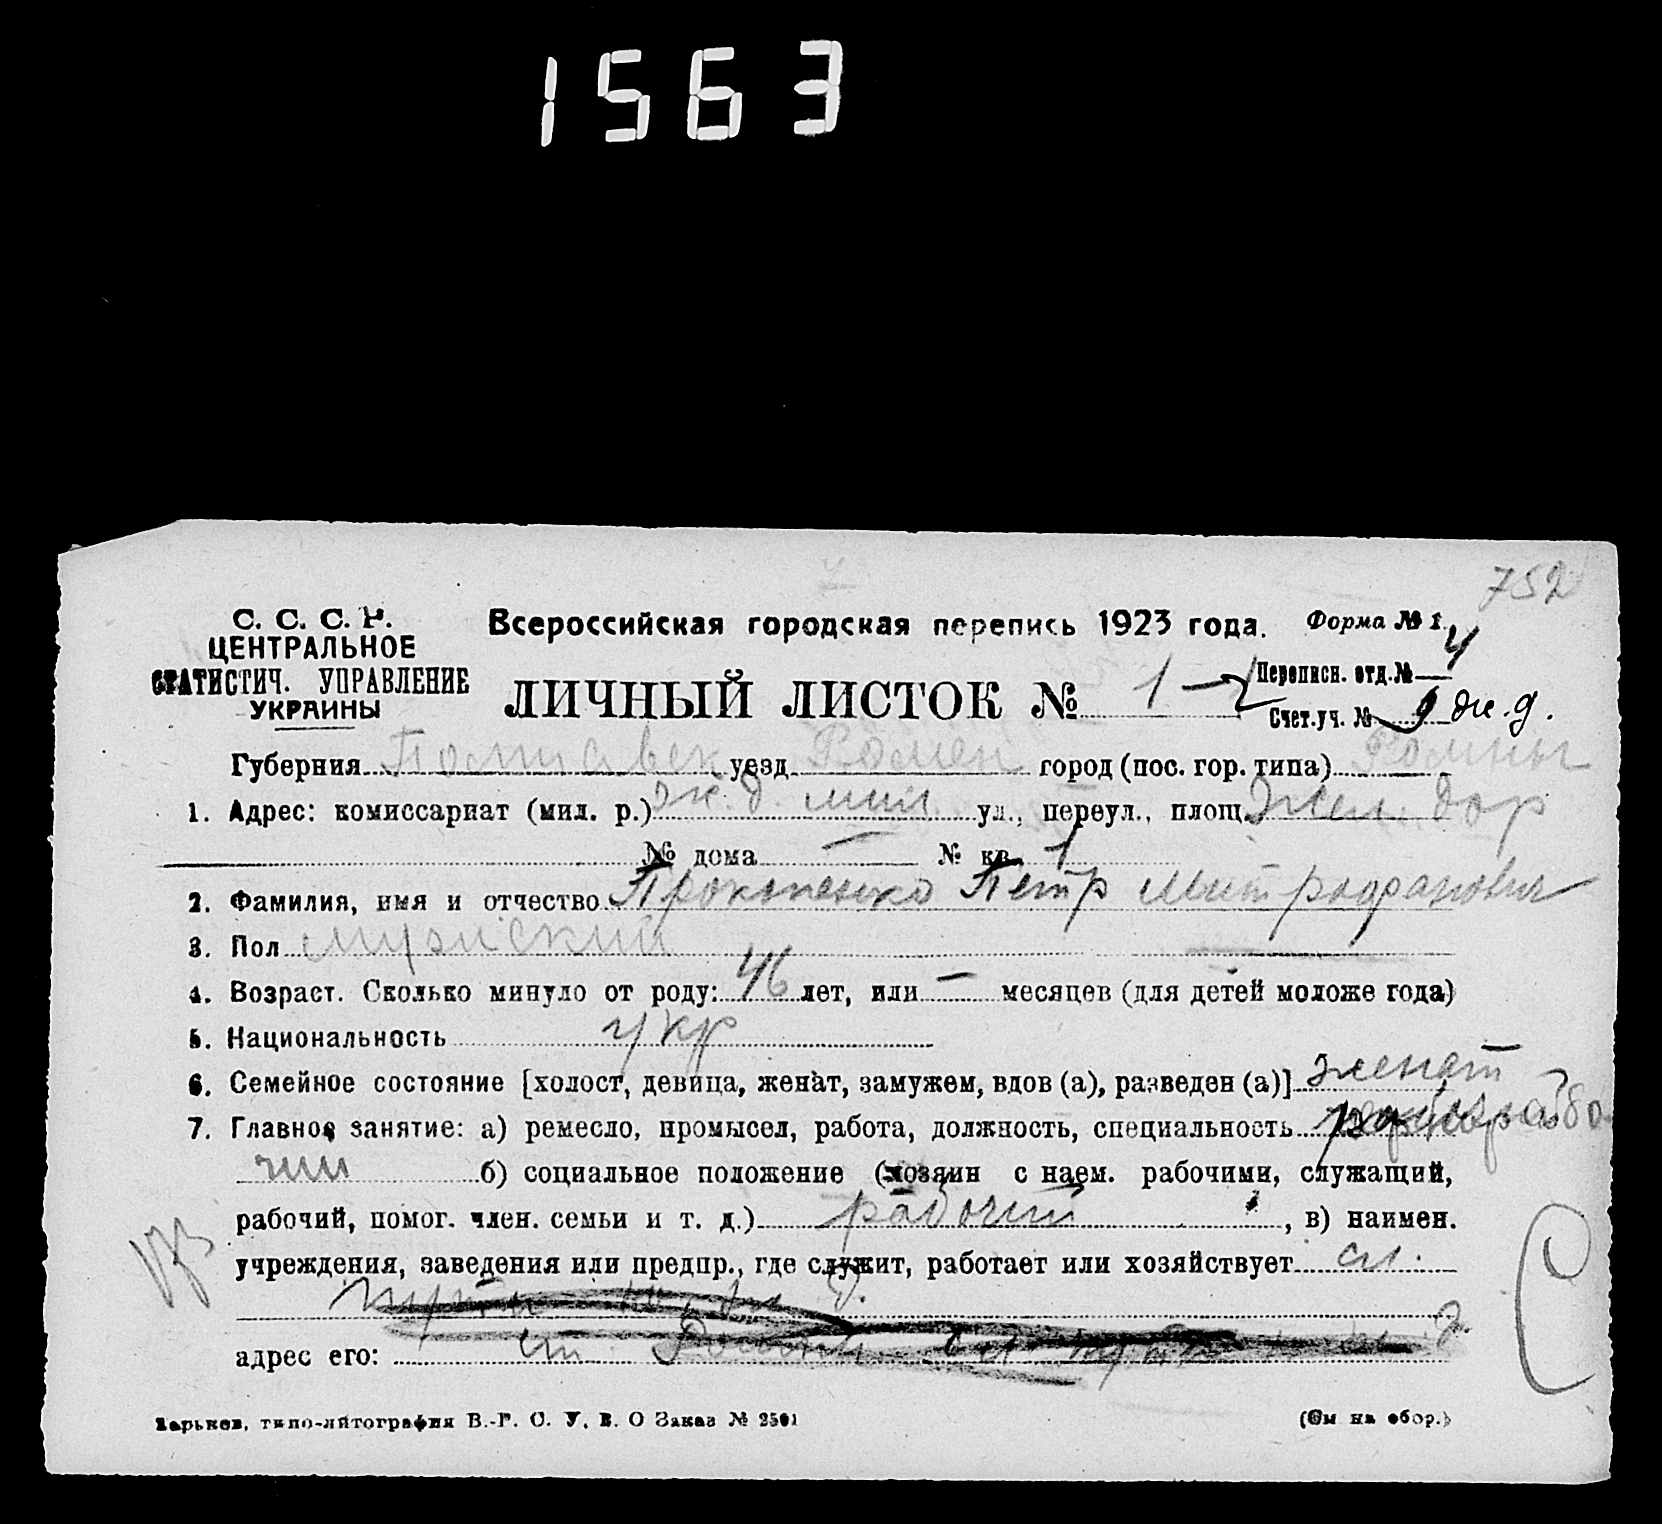 1563
752
С. С. С. Р.
ЦЕНТРАЛЬНОЕ
СТАТИСТИЧ. УПРАВЛЕНИЕ
УКРАИНЫ
Всероссийская городская перепись 1923 года. Форма № 1.
ЛИЧНЫЙ ЛИСТОК № 1
Переписн. отд. № 4
Счет. уч. № 9 ж. д.
Губерния Полтавск уезд Ромен город (пос. гор. типа) Ромны
1. Адрес: комиссариат (мил. р.) ж. д. мил. ул., переул., площ. Жел. дор
№ дома — № кв. 1
2. Фамилия, имя и отчество Прокопенко Петр Митрофанович
3. Пол мужский
4. Возраст. Сколько минуло от роду: 46 лет, или — месяцев (для детей моложе года)
5. Национальность укр
6. Семейное состояние [холост, девица, женат, замужем, вдов (а), разведен (а)] женат
7. Главное занятие: а) ремесло, промысел, работа, должность, специальность
чий б) социальное положение (хозяин с наем. рабочими, служащий,
рабочий, помог. член. семьи и т. д.) рабочий, в) наимен.
учреждения, заведения или предпр., где служит, работает или хозяйствует сл.
адрес его: ст. Ромны
Харьков, типо-литография В.-Р. С. У. В. О Заказ № 2501
(См на обор.)